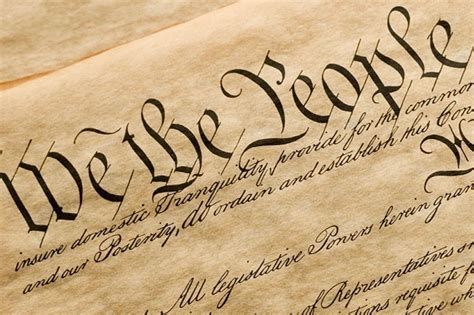 We the People
insure domestic Tranquility, provide for the common
and our Posterity, do ordain and establish this Cons
All legislative Powers herein gran
of Representatives
requisite